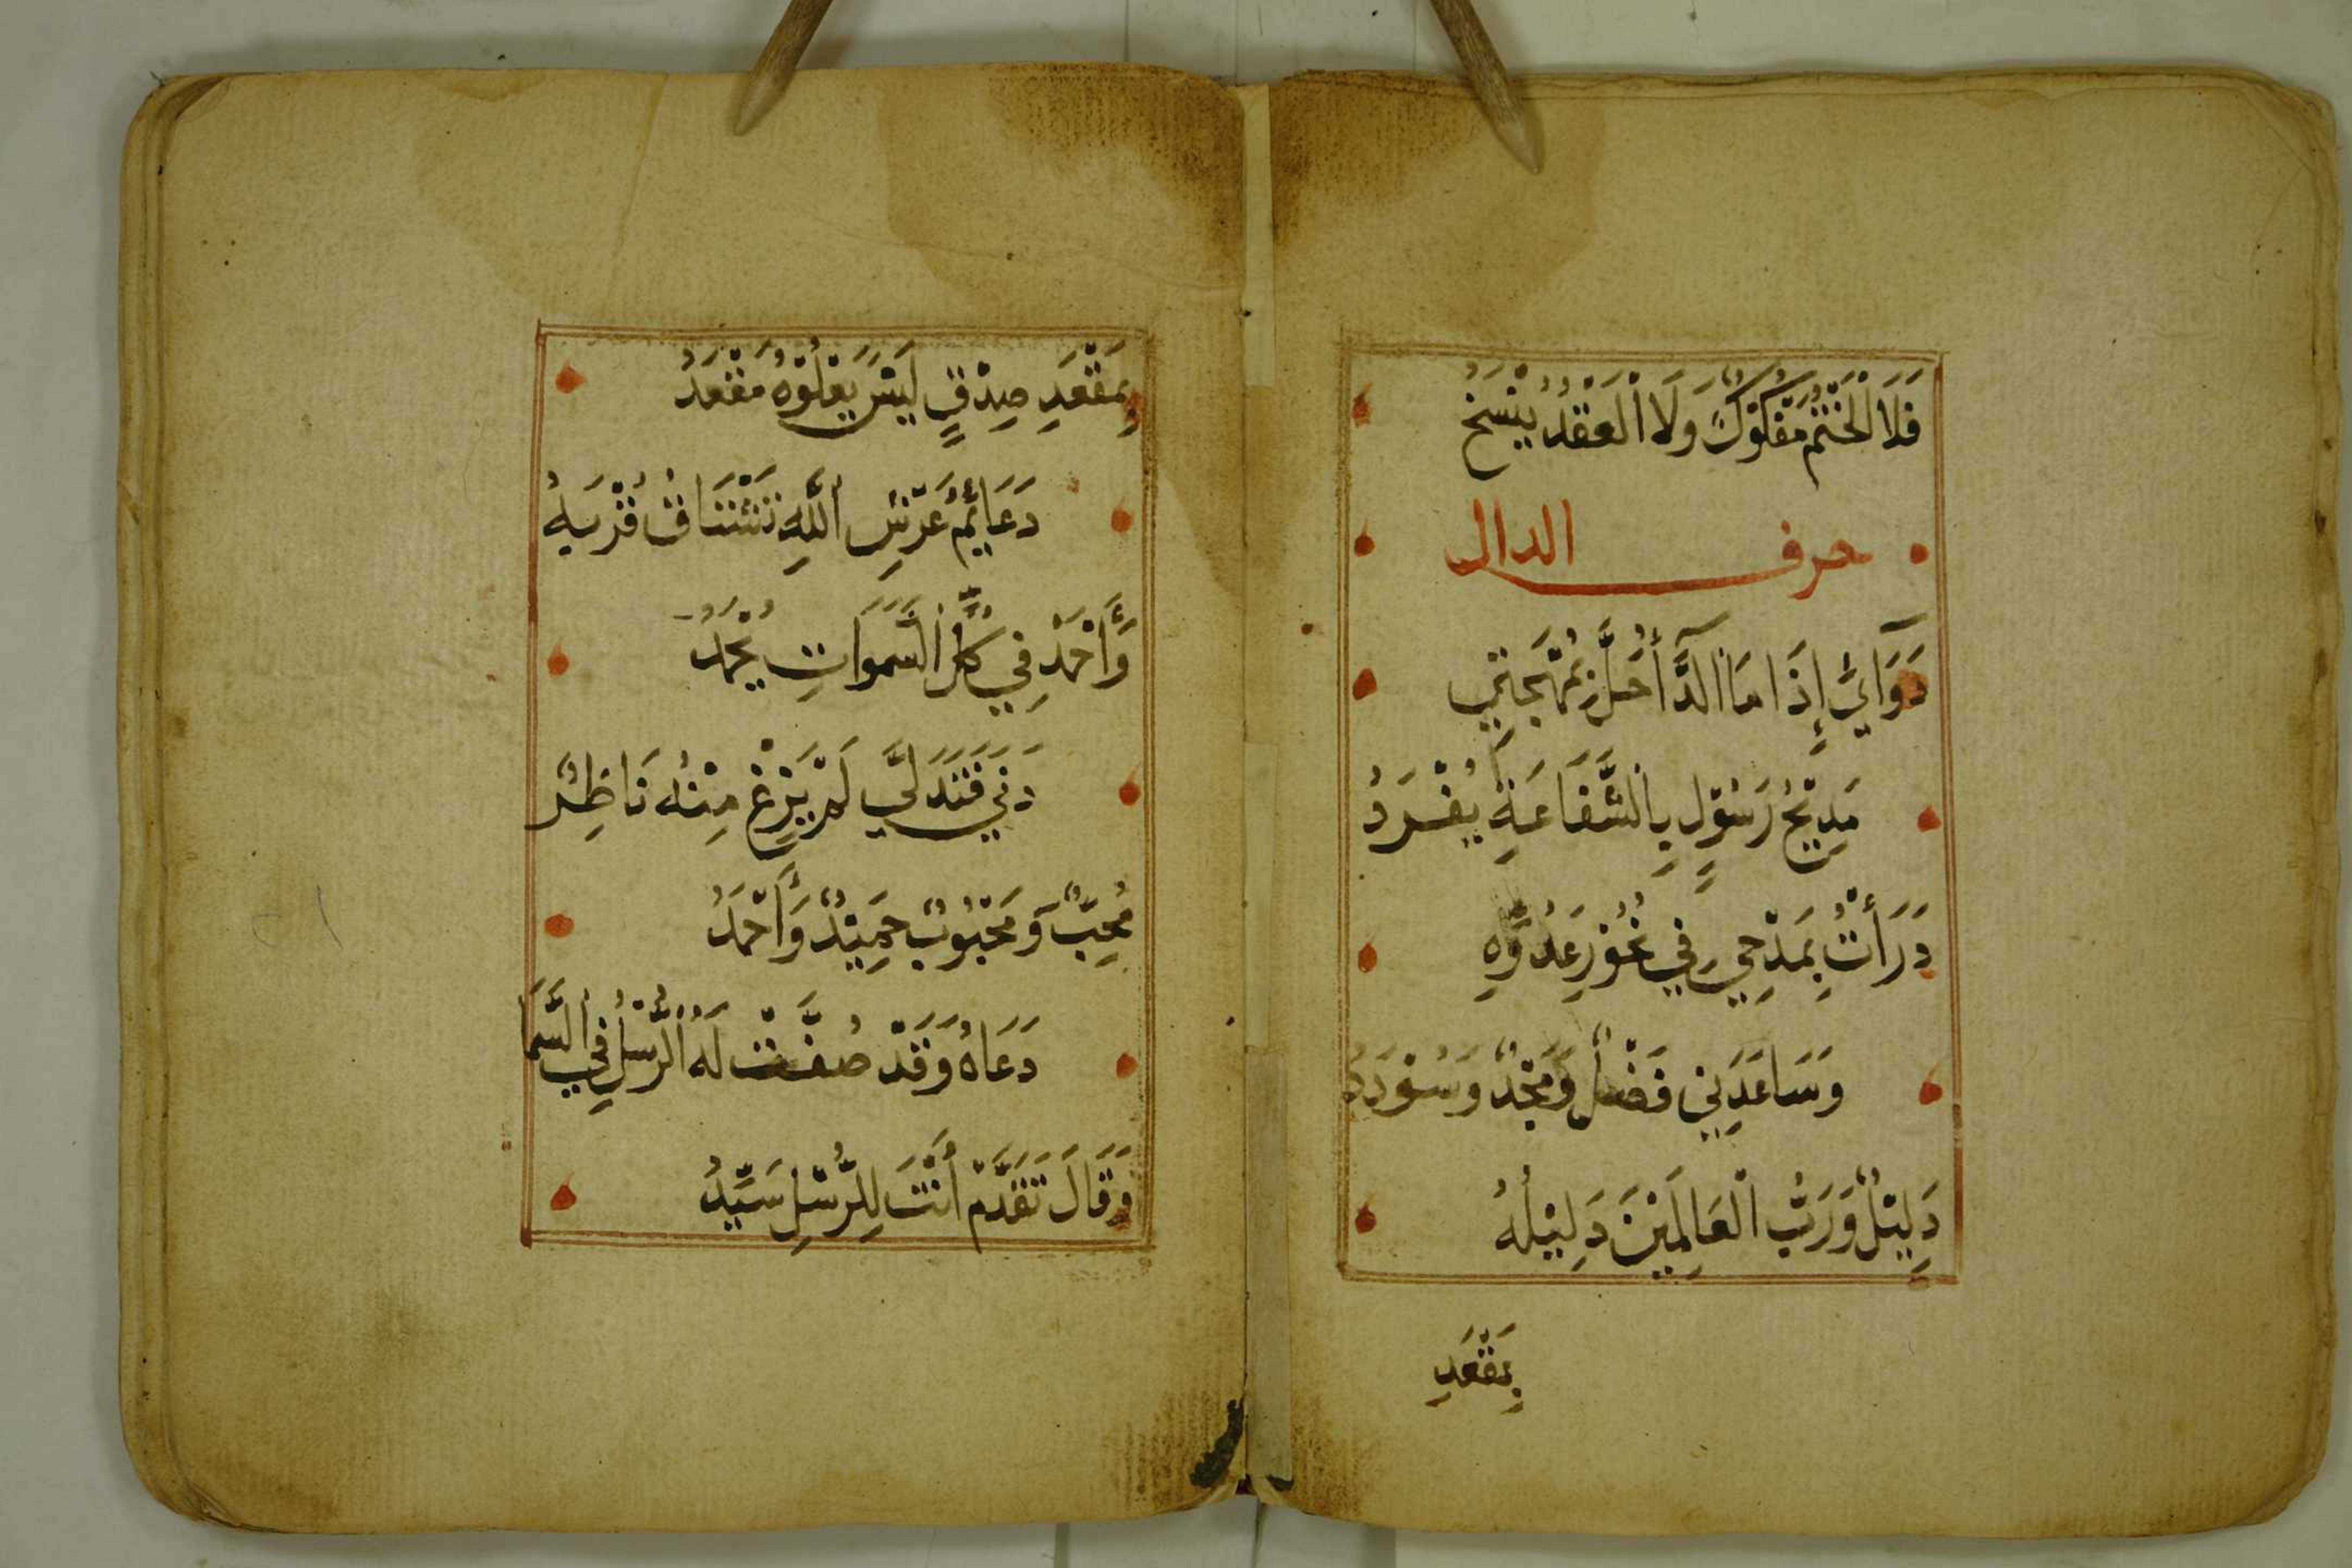 فَلَا الْخَتْمُ مَفْكُوْكٌ وَلَا الْعَقْدُ يُنْسَخُ
حرف الدال
دَوَآئِيْ إِذَا مَا الدَّآءُ حَلَّ بِمُهْجَتِيْ
مَدِيْحُ رَسُوْلٍ بِالشَّفَاعَةِ يُفْرَدُ
دَرَأْتُ بِمَدْحِيْ فِيْ نُحُوْرِ عَدُوِّهِ
وَسَاعَدَنِيْ فَضْلٌ وَمَجْدٌ وَسُؤْدَدُ
دَلِيْلٌ وَرَبُّ الْعَالَمِيْنَ دَلِيْلُهُ
بِمَقْعَدِ
بِمَقْعَدِ صِدْقٍ لَيْسَ يَعْلُوْهُ مَقْعَدُ
دَعَائِمُ عَرْشِ اللَّهِ تَشْتَاقُ قُرْبَهُ
وَأَحْمَدُ فِيْ كُلِّ السَّمَوَاتِ يُحْمَدُ
دَنَى فَتَدَلَّى لَمْ يَزِغْ مِنْهُ نَاظِرٌ
مُحِبٌّ وَمَحْبُوْبٌ حَمِيْدٌ وَأَحْمَدُ
دَعَاهُ وَقَدْ صُفَّتْ لَهُ الرُّسْلُ فِي السَّمَا
وَقَالَ تَقَدَّمْ أَنْتَ لِلرُّسْلِ سَيِّدُ